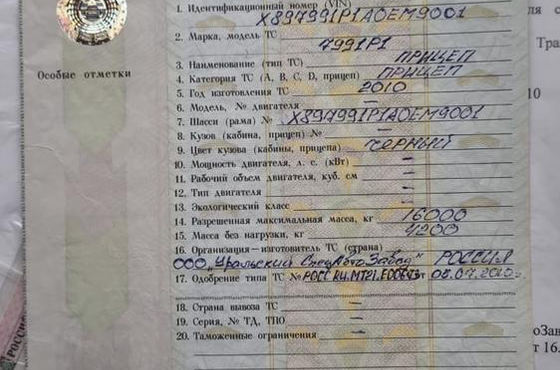 1. Идентификационный номер (VIN) X897991P1A0EM9001
2. Марка, модель ТС 7991P1
Особые отметки
3. Наименование (тип ТС) ПРИЦЕП
4. Категория ТС (А, В, С, D, прицеп) ПРИЦЕП
5. Год изготовления ТС 2010
6. Модель, № двигателя —
7. Шасси (рама) № X897991P1A0EM9001
8. Кузов (кабина, прицеп) № —
9. Цвет кузова (кабины, прицепа) ЧЕРНЫЙ
10. Мощность двигателя, л. с. (кВт) —
11. Рабочий объем двигателя, куб. см —
12. Тип двигателя —
13. Экологический класс —
14. Разрешенная максимальная масса, кг 16000
15. Масса без нагрузки, кг 4200
16. Организация—изготовитель ТС (страна)
ООО „Уральский СпецАвтоЗавод" РОССИЯ
17. Одобрение типа ТС №
18. Страна вывоза ТС —
19. Серия, № ТД, ТПО —
20. Таможенные ограничения —
Тра
10
т 16.